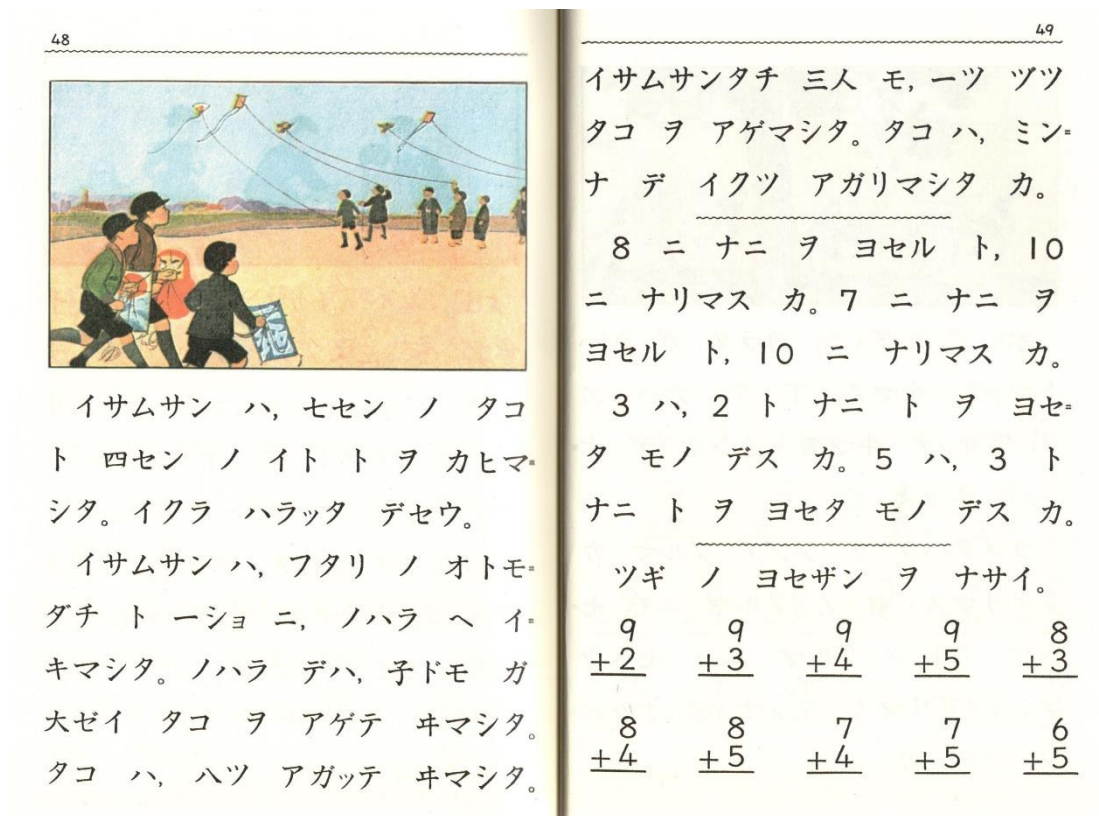 48
イサムサン ハ, 七セン ノ タコ
ト 四セン ノ イト ト ヲ カヒマ゠
シタ。イクラ ハラッタ デセウ。
イサムサン ハ, フタリ ノ オトモ゠
ダチ ト 一ショ ニ, ノハラ ヘ イ゠
キマシタ。ノハラ デハ, 子ドモ ガ
大ゼイ タコ ヲ アゲテ ヰマシタ。
タコ ハ, 八ツ アガッテ ヰマシタ。
49
イサムサンタチ 三人 モ, 一ツ ヅツ
タコ ヲ アゲマシタ。タコ ハ, ミン゠
ナ デ イクツ アガリマシタ カ。
8 ニ ナニ ヲ ヨセル ト, 10
ニ ナリマス カ。7 ニ ナニ ヲ
ヨセル ト, 10 ニ ナリマス カ。
3 ハ, 2 ト ナニ ト ヲ ヨセ゠
タ モノ デス カ。5 ハ, 3 ト
ナニ ト ヲ ヨセタ モノ デス カ。
ツギ ノ ヨセザン ヲ ナサイ。
9 9 9 9 8
+2 +3 +4 +5 +3
8 8 7 7 6
+4 +5 +4 +5 +5